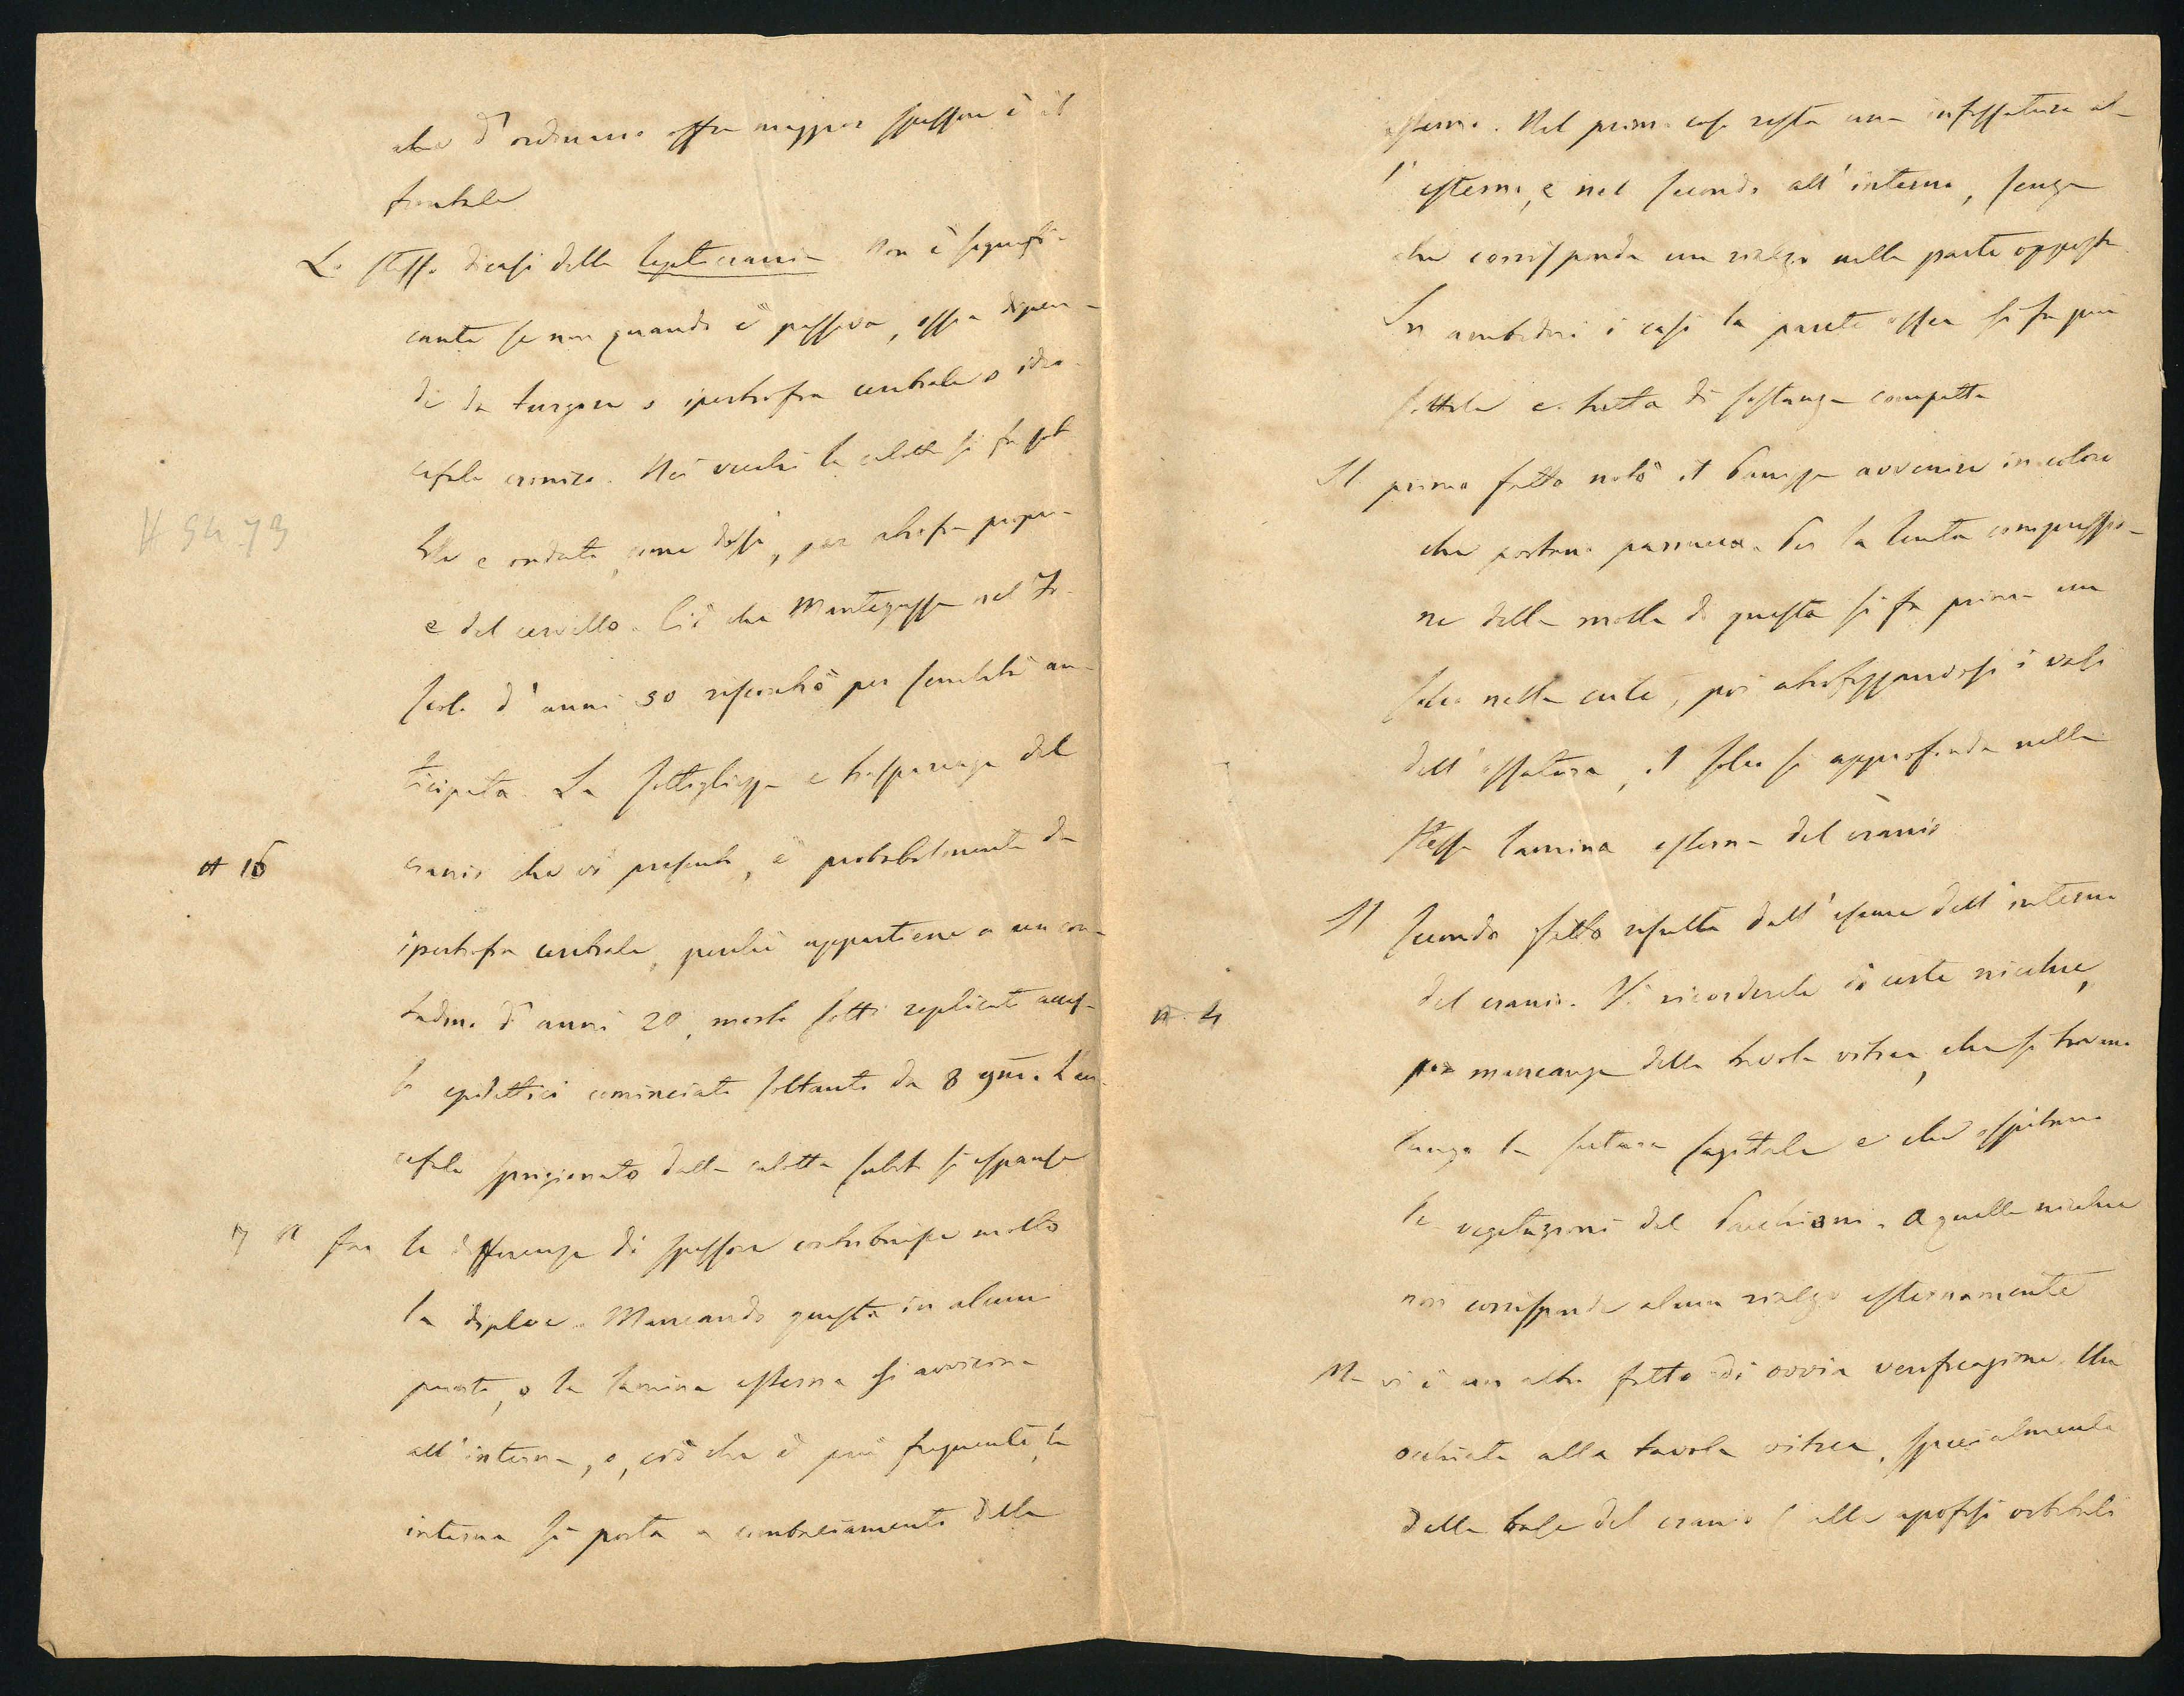 che d'ordinario offre maggior spessore è il
frontale
Lo stesso dicasi della leptocrania. Non è signifi-
cante se non quando è passiva, ossia dipen-
de da turgore o ipertrofia cerebrale o idro-
cefalo cronico. Nei vecchi la calotta si fa sot
tile e ondata, come dissi, per atrofia propria
# 54. 73
e del cervello. Ciò che Mantegazza nel Fo-
scolo d'anni 50 riscontrò per senilità an-
ticipata. La sottigliezza e trasparenza del
# 16
cranio che vi presento, è probabilmente da
ipertrofia cerebrale, perché appartiene a un con-
tadino d'anni 20, morto sotto replicati acces-
si epilettici cominciati soltanto da 8 gni. L'en-
cefalo sprigionato dalla calotta subito si espanse
7 A far la differenza di spessore contribuisce molto
la diploe. Mancando questa in alcuni
punti, o la lamina esterna si avvicina
all'interna, o, ciò che è più frequente, la
interna si porta a combaciamento della
esterna. Nel primo caso resta una infossatura al-
l'esterno, e nel secondo all'interno, senza
che corrisponda un rialzo nella parte opposta.
In ambidui i casi la parete ossea si fa più
sottile e tutta di sostanza compatta
Il primo fatto notò il Panizza avvenire in coloro
che portano parrucca. Per la lenta compressio-
ne della molla di questa si fa prima un
solco nella cute, poi atrofizzandosi i vasi
dell'ossatura, il solco si approfonda nella
stessa lamina esterna del cranio
Il secondo fatto risulta dall'esame dell'interno
# 4
del cranio. Vi ricorderete di certe nicchie,
per mancanza della tavola vitrea, che si trovano
lungo la sutura sagitale e che ospitano
le vegetazioni del Pacchioni. A quelle nicchie
non corrisponde alcun rialzo esternamente
Ma vi è un altro fatto di ovvia verificazione. Una
occhiata alla tavola vitrea, specialmente
della base del cranio (alle apofisi orbitali